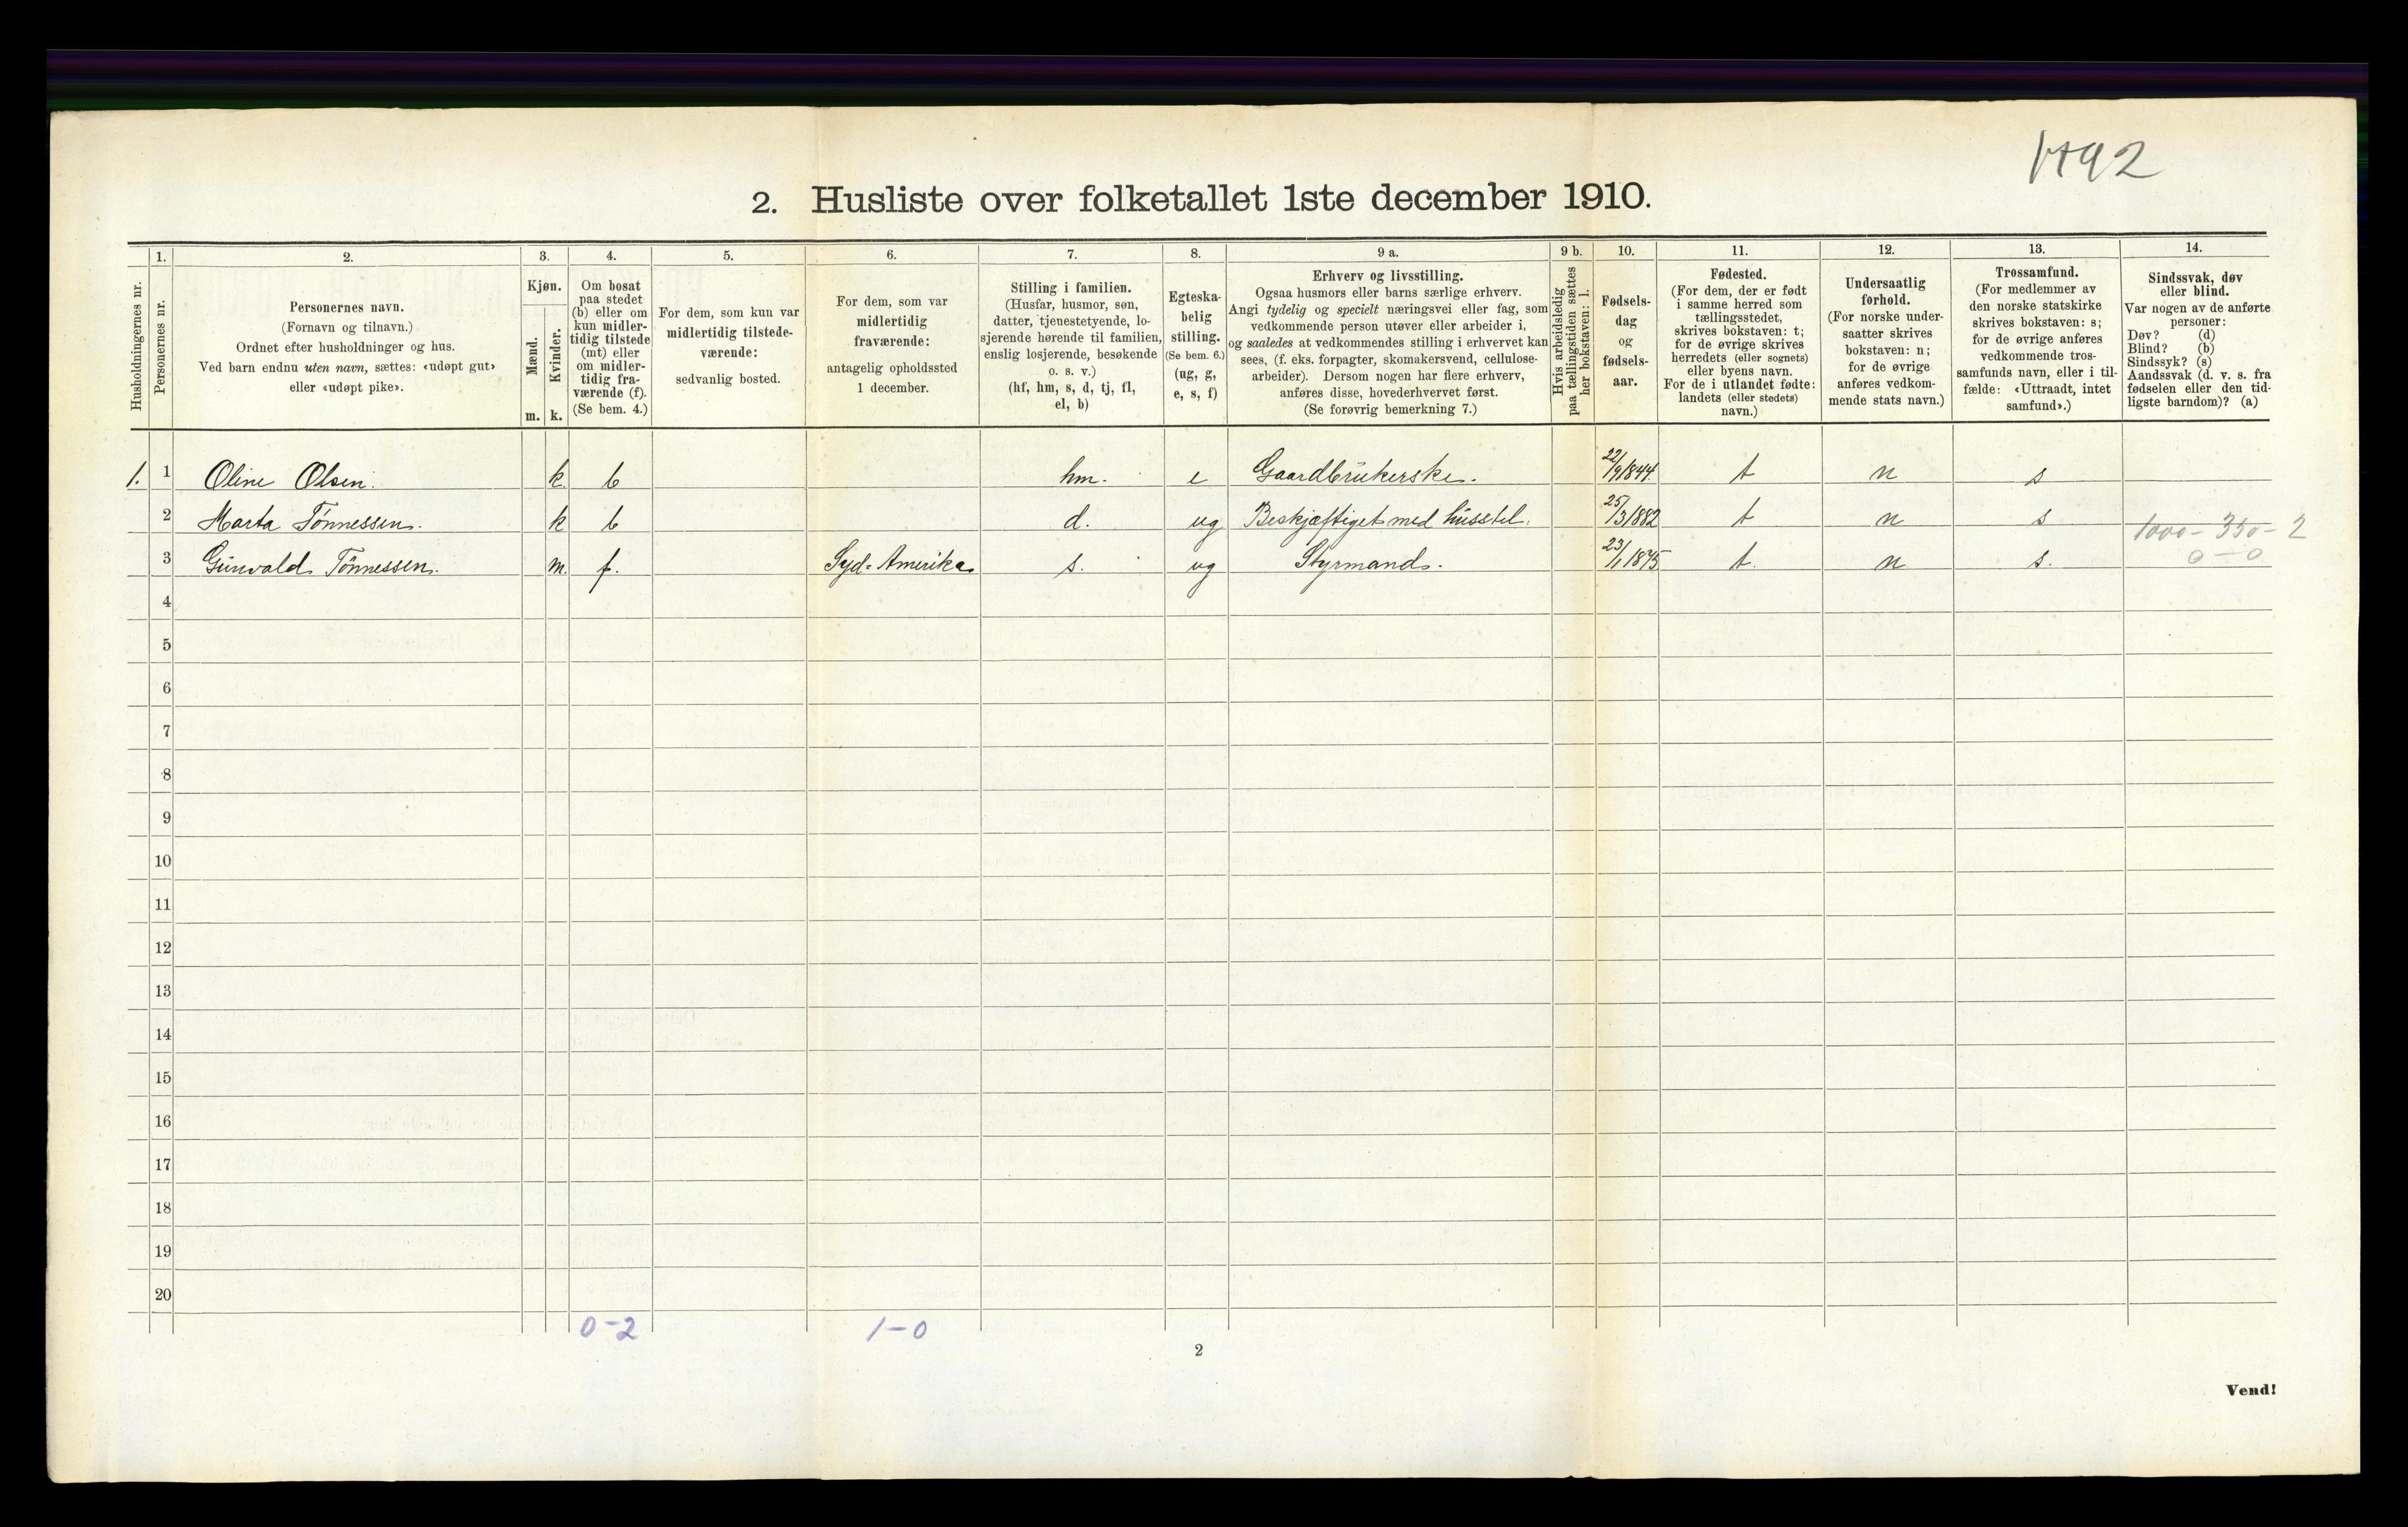 2. Husliste over folketallet 1ste december 1910.
Husholdningernes nr.
1.
Personernes nr.
2.
Personernes navn.
(Fornavn og tilnavn.)
Ordnet efter husholdninger og hus.
Ved barn endnu uten navn, sættes: «udøpt gut»
eller «udøpt pike».
3.
Kjøn.
Mænd.
m.
Kvinder.
k.
4.
Om bosat
paa stedet
(b) eller om
kun midler-
tidig tilstede
(mt) eller
om midler-
tidig fra-
værende (f).
(Se bem. 4.)
5.
For dem, som kun var
midlertidig tilstede-
værende:
sedvanlig bosted.
6.
For dem, som var
midlertidig
fraværende:
antagelig opholdssted
1 december.
7.
Stilling i familien.
(Husfar, husmor, søn,
datter, tjenestetyende, lo-
sjerende hørende til familien,
enslig losjerende, besøkende
o. s. v.)
(hf, hm, s, d, tj, fl,
el, b)
8.
Egteska-
belig
stilling.
(Se bem. 6.)
(ug, g,
e, s, f)
9 a.
Erhverv og livsstilling.
Ogsaa husmors eller barns særlige erhverv.
Angi tydelig og specielt næringsvei eller fag, som
vedkommende person utøver eller arbeider i,
og saaledes at vedkommendes stilling i erhvervet kan
sees, (f. eks. forpagter, skomakersvend, cellulose-
arbeider). Dersom nogen har flere erhverv,
anføres disse, hovederhvervet først.
(Se forøvrig bemerkning 7.)
9 b.
Hvis arbeidsledig
paa tællingstiden sættes
her bokstaven: l.
10.
Fødsels-
dag
og
fødsels-
aar.
11.
Fødested.
(For dem, der er født
i samme herred som
tællingsstedet,
skrives bokstaven: t;
for de øvrige skrives
herredets (eller sognets)
eller byens navn.
For de i utlandet fødte:
landets (eller stedets)
navn.)
12.
Undersaatlig
forhold.
(For norske under-
saatter skrives
bokstaven: n;
for de øvrige
anføres vedkom-
mende stats navn.)
13.
Trossamfund.
(For medlemmer av
den norske statskirke
skrives bokstaven: s;
for de øvrige anføres
vedkommende tros-
samfunds navn, eller i til-
fælde: «Uttraadt, intet
samfund».)
14.
Sindssvak, døv
eller blind.
Var nogen av de anførte
personer:
Døv? (d)
Blind? (b)
Sindssyk? (s)
Aandssvak (d. v. s. fra
fødselen eller den tid-
ligste barndom)? (a)
1. 1 Oline Olsen. k b hm. e Gaardbrukerske. 22/9 1844 t n s
2 Marta Tønnessen. k b d. ug Beskjæftiget med husstel. 25/3 1882 t n s
1000 - 350 - 2
3 Gunvald Tønnessen. m. f. Syd-Amerika s. ug Styrmand. 23/1 1875 t. n s.
0 - 0
4
5
6
7
8
9
10
11
12
13
14
15
16
17
18
19
20
0-2 1-0
2
Vend!